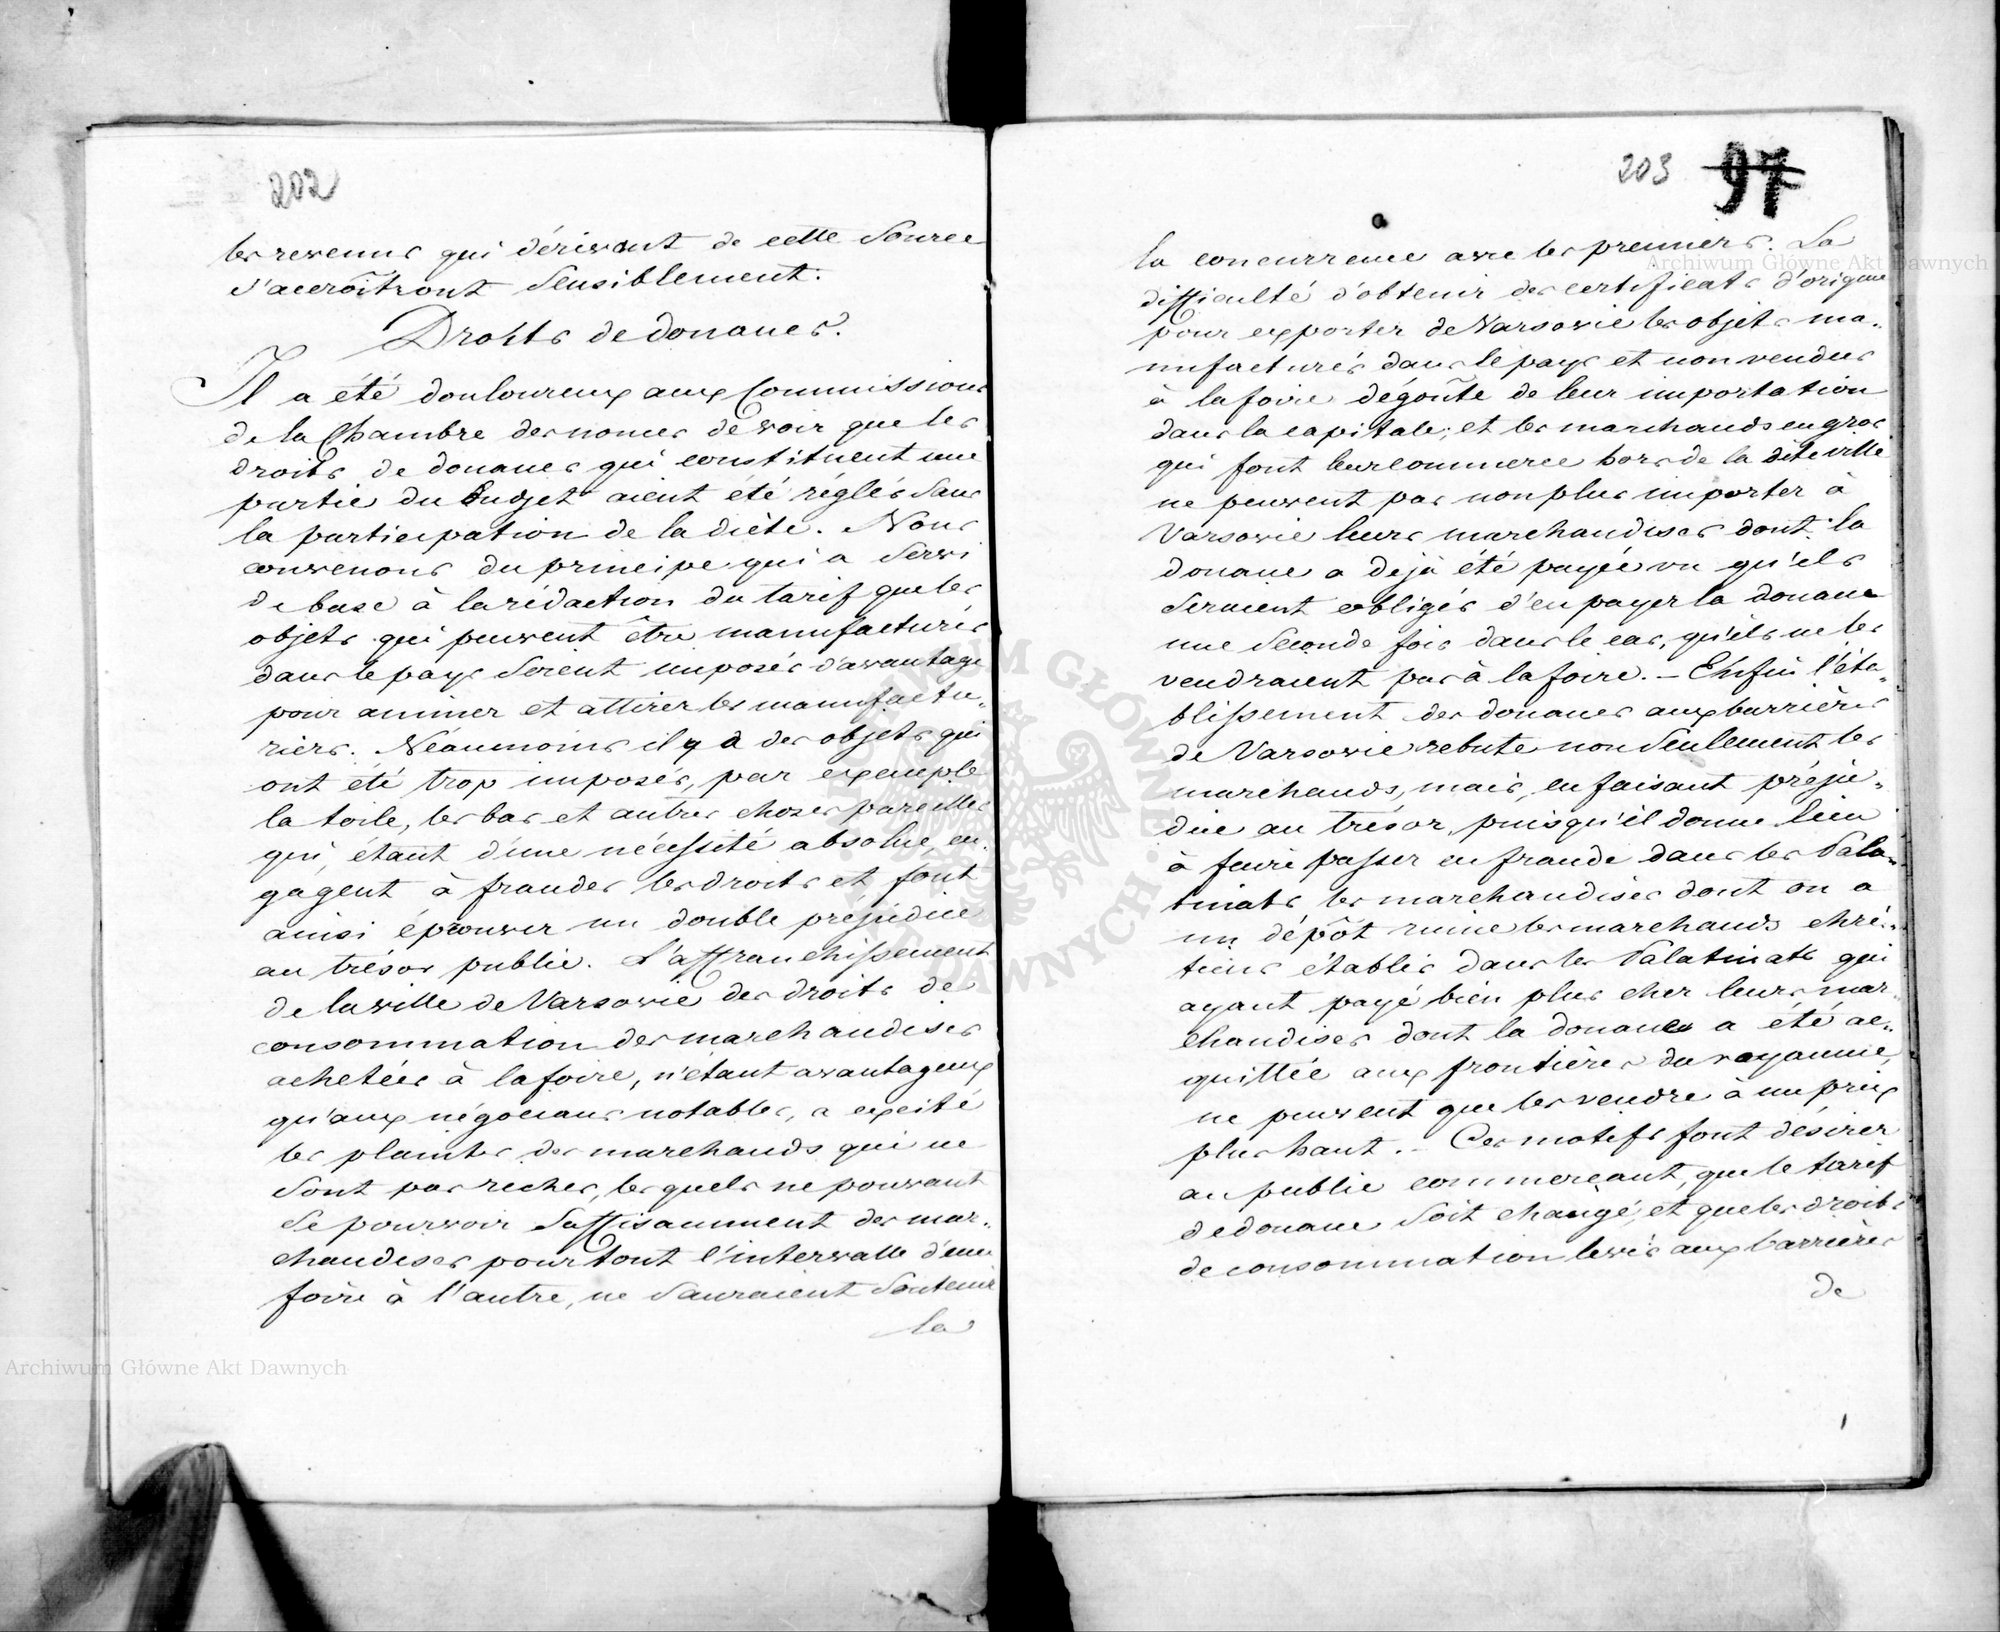 202
les revenus qui dérivent de cette source
s'accroîtront sensiblement.
Droits de douanes.
Il a été douloureux aux Commissions
de la Chambre des nonces de voir que les
droits de douanes qui constituent une
partie du budjet aient été réglés sans
la participation de la diète. Nous
convenons du principe qui a servi
de base à la rédaction du tarif que les
objets qui peuvent être manufacturés
dans le pays soient imposés d'avantage
pour animer et attirer les manufactu„
riers. Néaumoins il y a des objets qui
ont été trop imposés, par exemple
la toile, les bas et autres choses pareilles
qui, étant d'une nécessité absolue, en„
gagent à frauder les droits et font
ainsi éprouver un double préjudice
au trésor public. L'affranchissement
de la ville de Varsovie des droits de
consommation des marchandises
achetées à la foire, n'étant avantageux
qu'aux négocians notables, a excité
les plaintes des marchands qui ne
sont pas riches, lesquels ne pouvant
se pourvoir suffisamment des mar„
chandises pour tout l'intervalle d'une
foire à l'autre, ne sauraient soutenir
la
203 97
la concurrence avec les premiers. La
difficulté d'obtenir des certificats d'origine
pour exporter de Varsovie les objets ma„
nufacturés dans le pays et non vendus
à la foire dégoûte de leur importation
dans la capitale; et les marchands en gros
qui font leur commerce hors de la dite ville
ne peuvent pas non plus importer à
Varsovie leurs marchandises dont la
douane a déjà été payée vu qu'ils
seraient obligés d'en payer la douane
une seconde fois dans le cas, qu'ils ne les
vendraient pas à la foire. – Enfin l'éta„
blissement des douanes aux barrières
de Varsovie rebute non seulement les
marchands, mais, en faisant préju„
dice au trésor, puisqu'il donne lieu
à faire passer en fraude dans les Pala„
tinats les marchandises dont on a
un dépôt ruine les marchands chré„
tiens établis dans les Palatinats qui
ayant payé bien plus cher leurs mar„
chandises dont la douane a été ac„
quittée aux frontières du royaume,
ne peuvent que les vendre à un prix
plus haut. – Ces motifs font désirer
au public commerçant, que le tarif
de douane soit changé, et que les droits
de consommation levés aux barrières
de
Archiwum Główne Akt Dawnych
Archiwum Główne Akt Dawnych
ARCHIWUM GŁÓWNE AKT DAWNYCH